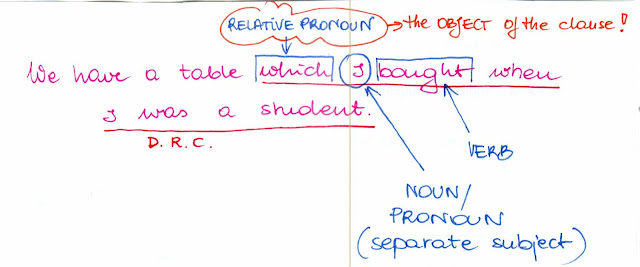 RELATIVE PRONOUN → the OBJECT of the clause!
We have a table which I bought when
I was a student.
D. R. C.
VERB
NOUN/
PRONOUN
(separate subject)